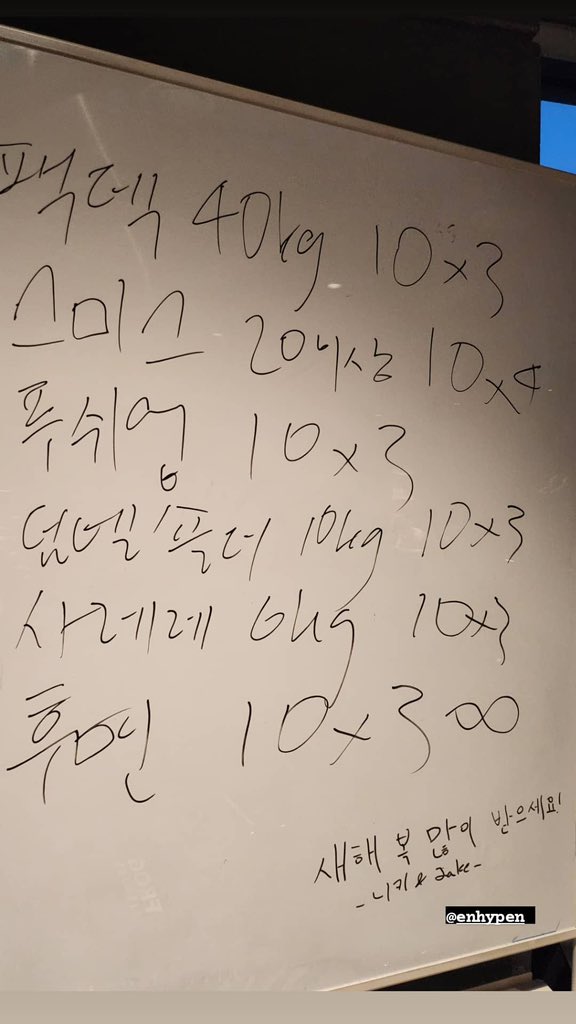 팩덱 40kg 10x3
스미스 20이상 10x4
푸쉬업 10x3
덤벨 숄더 10kg 10x3
사레레 6kg 10x3
후면 10x3 ∞
새해 복 많이 받으세요!
- 니키 & Jake -
@enhypen